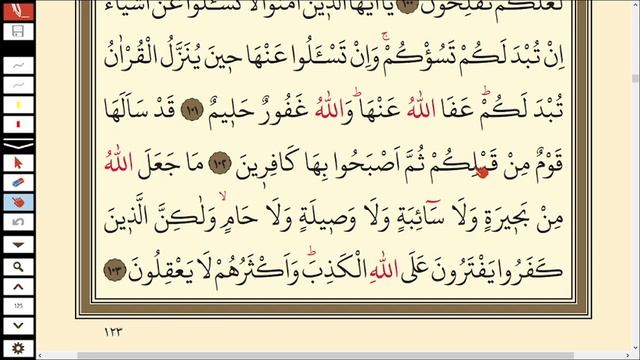 لَعَلَّكُمْ تُفْلِحُونَ ١٠٠ يَا اَيُّهَا الَّذِينَ اٰمَنُوا لَا تَسْـَٔلُوا عَنْ اَشْيَاءَ
اِنْ تُبْدَ لَكُمْ تَسُؤْكُمْۚ وَاِنْ تَسْـَٔلُوا عَنْهَا حِينَ يُنَزَّلُ الْقُرْاٰنُ
تُبْدَ لَكُمْۜ عَفَا اللّٰهُ عَنْهَاۜ وَاللّٰهُ غَفُورٌ حَلِيمٌ ١٠١ قَدْ سَاَلَهَا
قَوْمٌ مِنْ قَبْلِكُمْ ثُمَّ اَصْبَحُوا بِهَا كَافِرِينَ ١٠٢ مَا جَعَلَ اللّٰهُ
مِنْ بَحِيرَةٍ وَلَا سَٓائِبَةٍ وَلَا وَصِيلَةٍ وَلَا حَامٍۙ وَلٰكِنَّ الَّذِينَ
كَفَرُوا يَفْتَرُونَ عَلَى اللّٰهِ الْكَذِبَۜ وَاَكْثَرُهُمْ لَا يَعْقِلُونَ ١٠٣
١٢٣
125